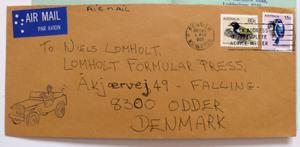 AIR MAIL
PAR AVION
AIR MAIL
AUSTRALIA
80c
AUSTRALIA
15c
TO NIELS LOMHOLT.
LOMHOLT FORMULAR PRESS,
Åkjærvej 49 - FALLING.
8300 ODDER
DENMARK